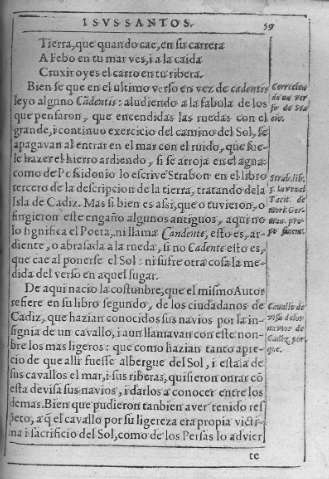 I SVS SANTOS. 59
Tierra, que quando cae, en su carrera
A Febo en tu mar ves, i a la caida
Cruxir oyes el carro en tu ribera.
Bien se que en el ultimo verso en vez de cadentis
leyo alguno Cadentis: aludiendo a la fabula de los
que pensaron, que encendidas las ruedas con el
grande, i continuo exercicio del camino del Sol, se
apagavan al entrar en el mar con el ruido, que sue-
le hazer el hierro ardiendo, si se arroja en el agua:
como de Posidonio lo escrive Strabon en el libro
tercero de la descripcion de la tierra, tratando de la
Isla de Cadiz. Mas si bien es assi, que o tuvieron, o
fingieron este engaño algunos antiguos, aqui no
lo significa el Poeta, ni llama Candente, esto es, ar-
diente, o abrasada a la rueda, si no Cadente esto es,
que cae al ponerse el Sol: ni sufre otra cosa la me-
dida del verso en aquel lugar.
De aqui nacio la costunbre, que el mismo Autor
refiere en su libro segundo, de los ciudadanos de
Cadiz, que hazian conocidos sus navios por la in-
signia de un cavallo, i aun llamavan con este non-
bre los mas ligeros: que como hazian tanto apre-
cio de que alli fuesse albergue del Sol, i estala de
sus cavallos el mar, i sus riberas, quisieron onrar cõ
esta devisa sus navios, i darlos a conocer entre los
demas. Bien que pudieron tanbien aver tenido res
peto, a q̃ el cavallo por su ligereza era propia victi-
ma i sacrificio del Sol, como de los Persas lo advier
te
Correcion
de un ver
so de Sta
cio.
Strab. lib.
3.
Tacit. de
mor. Ger
man.
Cavallo de
visa de los
navios de
Cadiz, por
que.